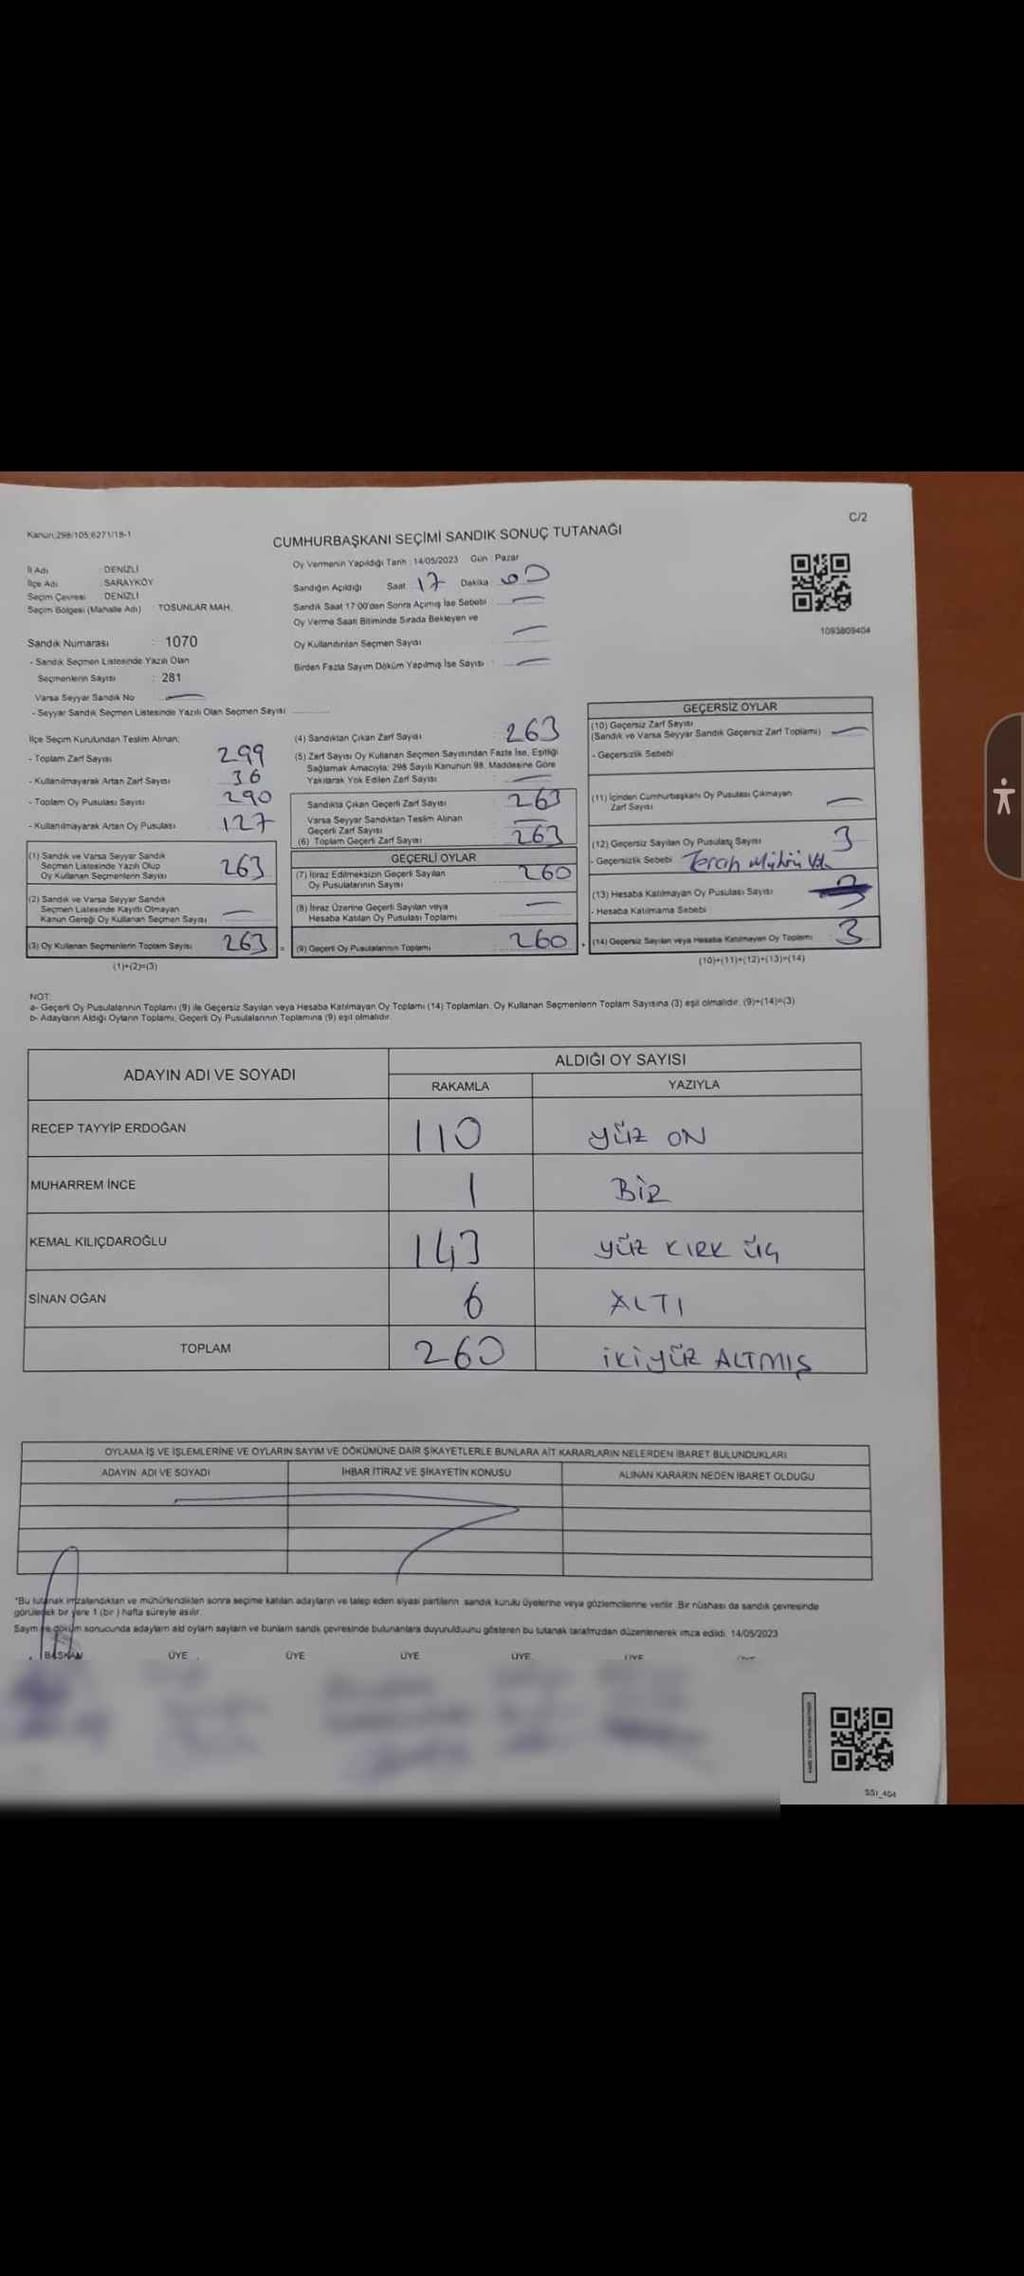 C/2
Kanun:298/105;6271/18-1
CUMHURBAŞKANI SEÇİMİ SANDIK SONUÇ TUTANAĞI
İl Adı : DENİZLİ
İlçe Adı : SARAYKÖY
Seçim Çevresi : DENİZLİ
Seçim Bölgesi (Mahalle Adı) : TOSUNLAR MAH.
Sandık Numarası : 1070
- Sandık Seçmen Listesinde Yazılı Olan
Seçmenlerin Sayısı : 281
Varsa Seyyar Sandık No
- Seyyar Sandık Seçmen Listesinde Yazılı Olan Seçmen Sayısı
Oy Vermenin Yapıldığı Tarih : 14/05/2023 Gün : Pazar
Sandığın Açıldığı Saat 17 Dakika 00
Sandık Saat 17:00'dan Sonra Açımış İse Sebebi
Oy Verme Saati Bitiminde Sırada Bekleyen ve
Oy Kullandırılan Seçmen Sayısı
Birden Fazla Sayım Döküm Yapılmış İse Sayısı :
1093809404
İlçe Seçim Kurulundan Teslim Alınan;
- Toplam Zarf Sayısı 299
- Kullanılmayarak Artan Zarf Sayısı 36
- Toplam Oy Pusulası Sayısı 290
- Kullanılmayarak Artan Oy Pusulası 127
(1) Sandık ve Varsa Seyyar Sandık
Seçmen Listesinde Yazılı Olup
Oy Kullanan Seçmenlerin Sayısı 263
(2) Sandık ve Varsa Seyyar Sandık
Seçmen Listesinde Kayıtlı Olmayan
Kanun Gereği Oy Kullanan Seçmen Sayısı
(3) Oy Kullanan Seçmenlerin Toplam Sayısı 263 =
(1)+(2)=(3)
(4) Sandıktan Çıkan Zarf Sayısı 263
(5) Zarf Sayısı Oy Kullanan Seçmen Sayısından Fazla İse, Eşitliği
Sağlamak Amacıyla; 298 Sayılı Kanunun 98. Maddesine Göre
Yakılarak Yok Edilen Zarf Sayısı
Sandıkta Çıkan Geçerli Zarf Sayısı 263
Varsa Seyyar Sandıktan Teslim Alınan
Geçerli Zarf Sayısı
(6) Toplam Geçerli Zarf Sayısı 263
GEÇERLİ OYLAR
(7) İtiraz Edilmeksizin Geçerli Sayılan
Oy Pusulalarının Sayısı 260
(8) İtiraz Üzerine Geçerli Sayılan veya
Hesaba Katılan Oy Pusulası Toplamı
(9) Geçerli Oy Pusulalarının Toplamı 260
GEÇERSİZ OYLAR
(10) Geçersiz Zarf Sayısı
(Sandık ve Varsa Seyyar Sandık Geçersiz Zarf Toplamı)
- Geçersizlik Sebebi
(11) İçinden Cumhurbaşkanı Oy Pusulası Çıkmayan
Zarf Sayısı
(12) Geçersiz Sayılan Oy Pusulası Sayısı 3
- Geçersizlik Sebebi Tercih Mührü
(13) Hesaba Katılmayan Oy Pusulası Sayısı
- Hesaba Katılmama Sebebi
(14) Geçersiz Sayılan veya Hesaba Katılmayan Oy Toplamı 3
(10)+(11)+(12)+(13)=(14)
NOT:
a- Geçerli Oy Pusulalarının Toplamı (9) ile Geçersiz Sayılan veya Hesaba Katılmayan Oy Toplamı (14) Toplamları, Oy Kullanan Seçmenlerin Toplam Sayısına (3) eşit olmalıdır. (9)+(14)=(3)
b- Adayların Aldığı Oyların Toplamı, Geçerli Oy Pusulalarının Toplamına (9) eşit olmalıdır.
ADAYIN ADI VE SOYADI
ALDIĞI OY SAYISI
RAKAMLA YAZIYLA
RECEP TAYYİP ERDOĞAN 110 YÜZ ON
MUHARREM İNCE 1 BİR
KEMAL KILIÇDAROĞLU 143 YÜZ KIRK ÜÇ
SİNAN OĞAN 6 ALTI
TOPLAM 260 İKİYÜZ ALTMIŞ
OYLAMA İŞ VE İŞLEMLERİNE VE OYLARIN SAYIM VE DÖKÜMÜNE DAİR ŞİKAYETLERLE BUNLARA AİT KARARLARIN NELERDEN İBARET BULUNDUKLARI
ADAYIN ADI VE SOYADI İHBAR İTİRAZ VE ŞİKAYETİN KONUSU ALINAN KARARIN NEDEN İBARET OLDUĞU
*Bu tutanak imzalandıktan ve mühürlendikten sonra seçime katılan adayların ve talep eden siyasi partilerin sandık kurulu üyelerine veya gözlemcilerine verilir. Bir nüshası da sandık çevresinde
görülecek bir yere 1 (bir ) hafta süreyle asılır.
Sayım ve döküm sonucunda adayların aldı oyların sayıların ve bunların sandık çevresinde bulunanlara duyurulduunu gösteren bu tutanak tarafımızdan düzenlenerek imza edildi. 14/05/2023
BAŞKAN ÜYE ÜYE ÜYE ÜYE ÜYE
SS1_404